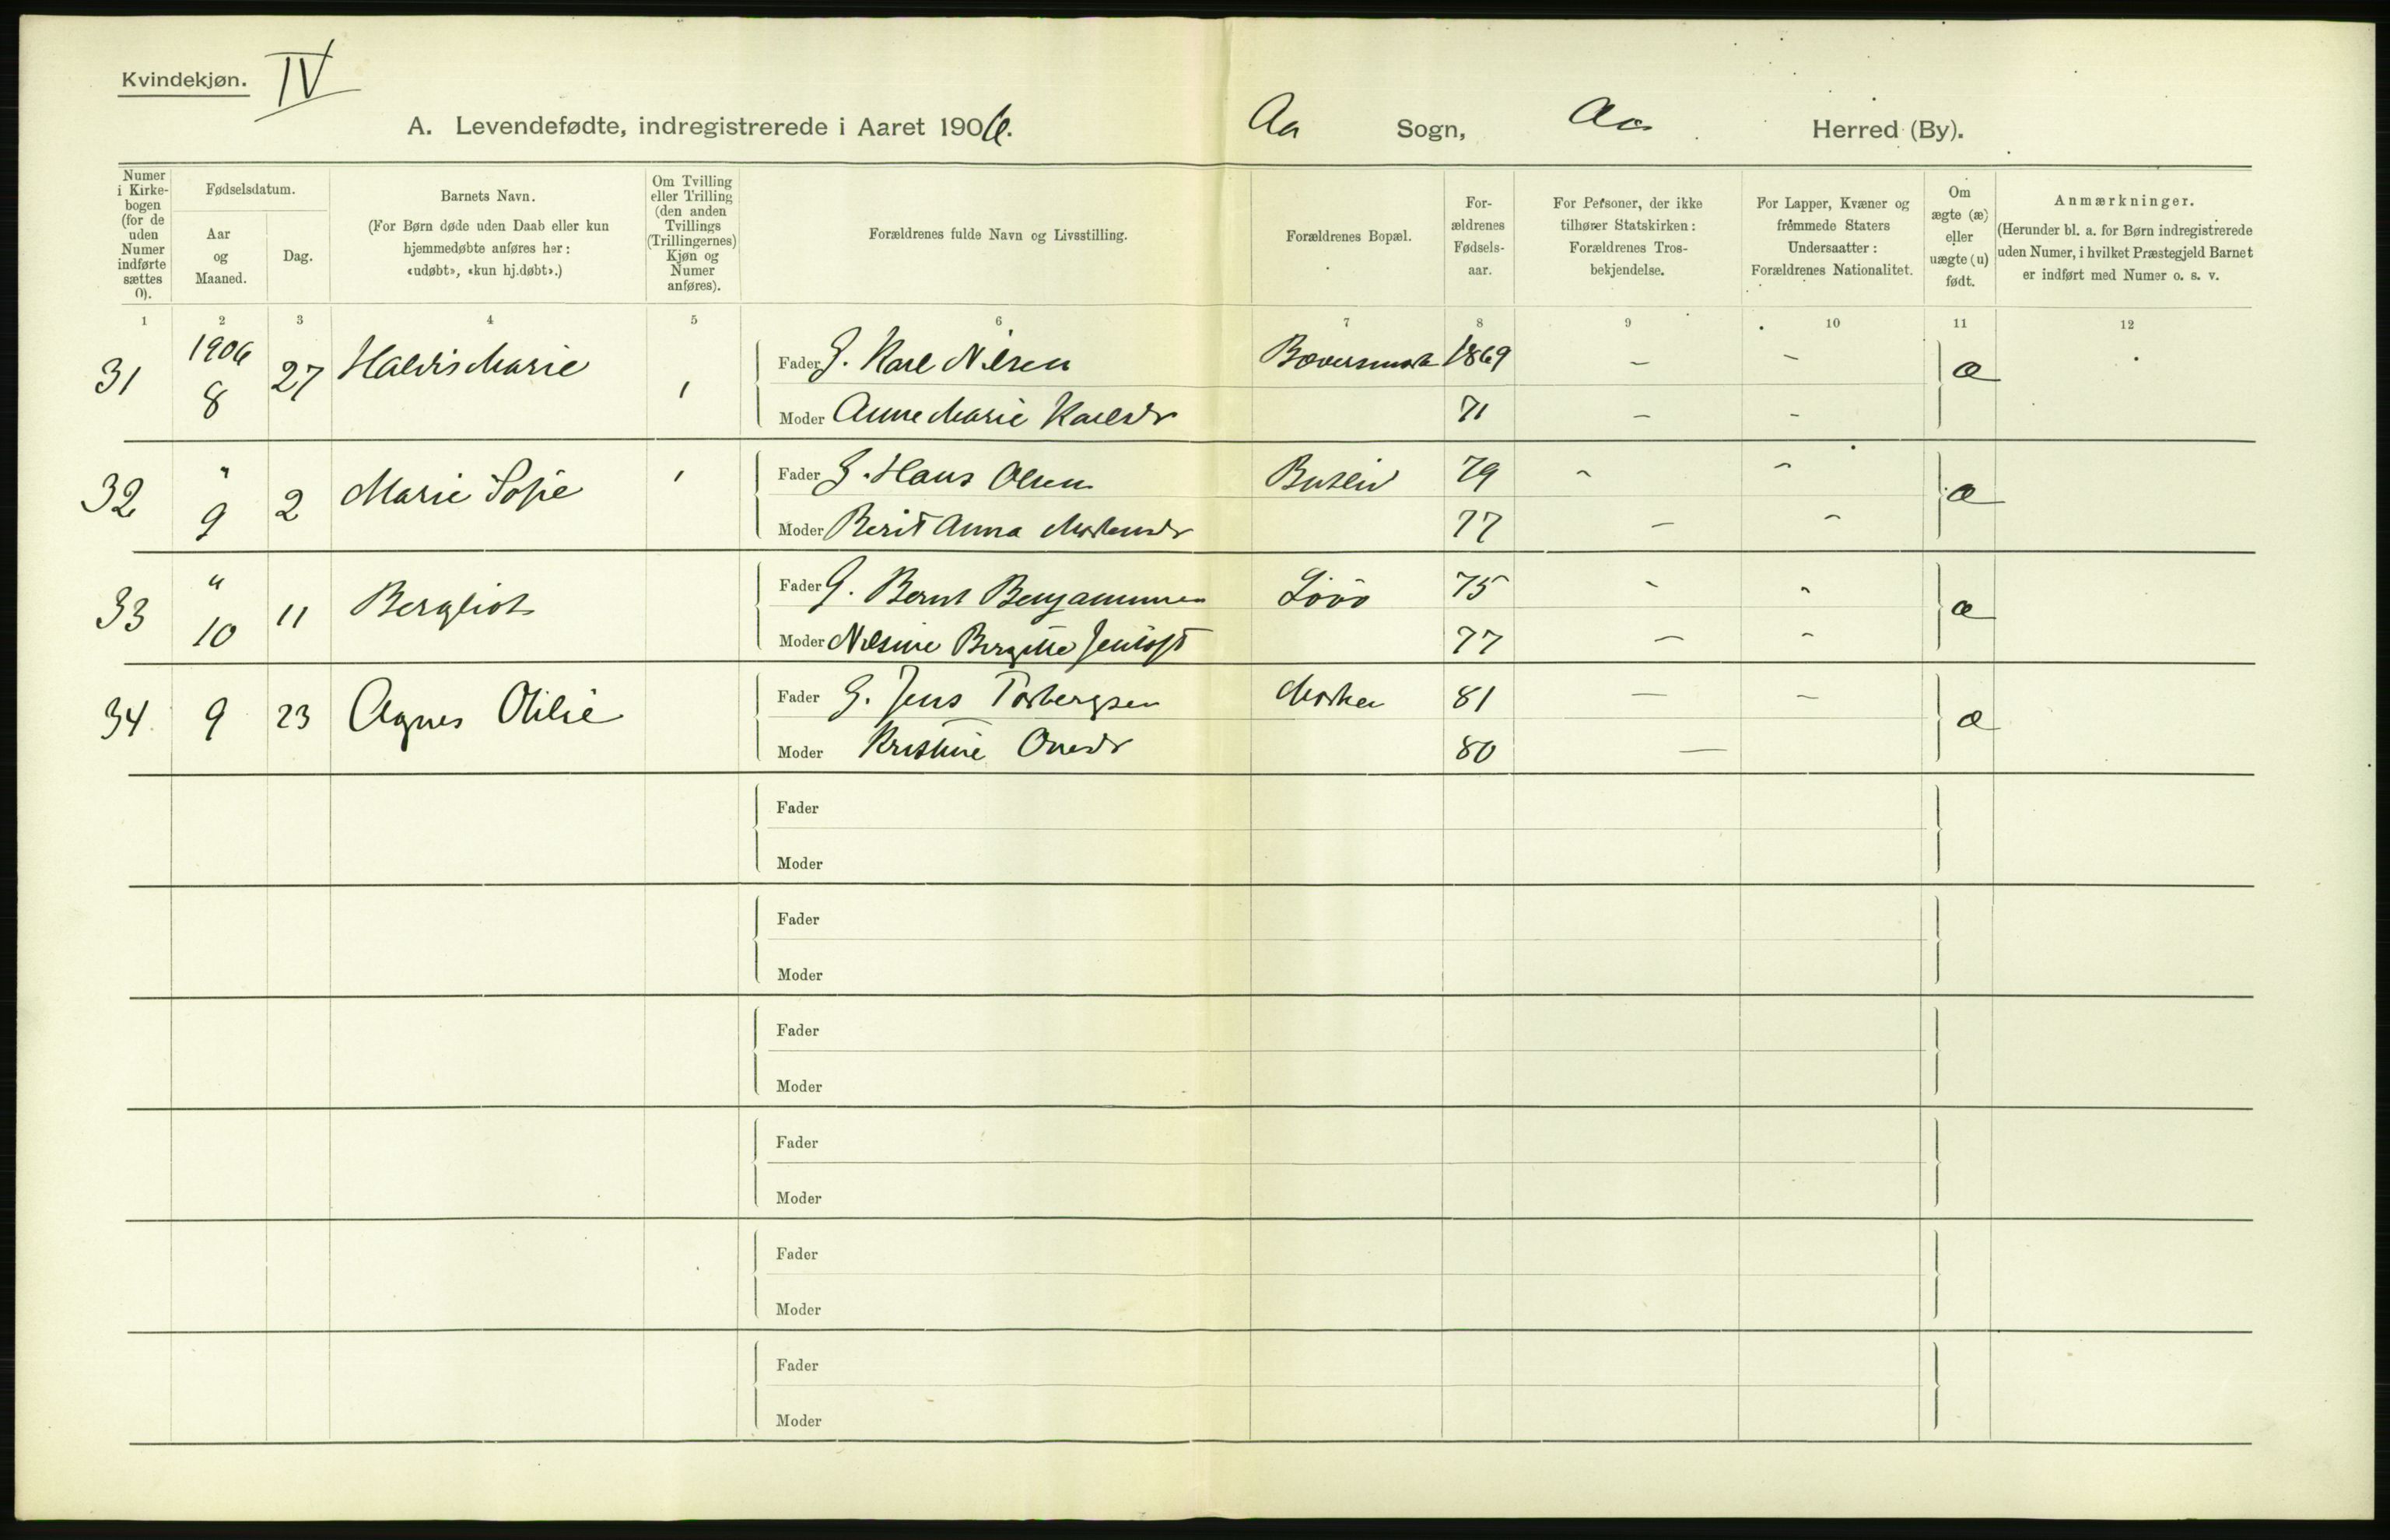 Kvindekjøn. IV
A. Levendefødte, indregistrerede i Aaret 1906. Aa Sogn, Aa Herred (By).
Numer i Kirkebogen (for de uden Numer indførte sættes 0).
Fødselsdatum.
Aar og Maaned.
Dag.
Barnets Navn.
(For Børn døde uden Daab eller kun hjemmedøbte anføres her: «udøbt», «kun hj.døbt».)
Om Tvilling eller Trilling (den anden Tvillings (Trillingernes) Kjøn og Numer anføres).
Forældrenes fulde Navn og Livsstilling.
Forældrenes Bopæl.
Forældrenes Fødselsaar.
For Personer, der ikke tilhører Statskirken: Forældrenes Trosbekjendelse.
For Lapper, Kvæner og fremmede Staters Undersaatter: Forældrenes Nationalitet.
Om ægte (æ) eller uægte (u) født.
Anmærkninger.
(Herunder bl. a. for Børn indregistrerede uden Numer, i hvilket Præstegjeld Barnet er indført med Numer o. s. v.
1 2 3 4 5 6 7 8 9 10 11 12
31 1906 8 27 Haldis Marie Fader G. Karl Nilsen 1869 – – æ
Moder Anne Marie Karlsdr 71 – –
32 " 9 2 Marie Sofie Fader G. Hans Olsen 79 – – æ
Moder Berit Anna Mortensdr 77 – –
33 " 10 11 Bergliot Fader G. Bernt Benjaminsen 75 – – æ
Moder Nilsine Bergitte 77 – –
34 9 23 Agnes Otilie Fader G. Jens Torbergsen 81 – – æ
Moder Kristine 80 –
Fader
Moder
Fader
Moder
Fader
Moder
Fader
Moder
Fader
Moder
Fader
Moder